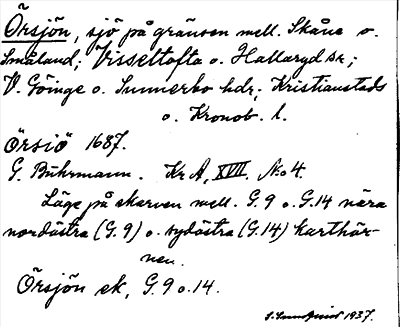 Örsjön, sjö på gränsen mell. Skåne o.
Småland; Visseltofta o. Hallaryd sk.;
V. Göinge o. Sunnerbo hdr; Kristianstads
o. Kronob. l.
Örsiö 1687.
G. Buhrmann. Kr A, XVII. No 4.
Läge på skarven mell. G. 9 o. G. 14 nära
nordöstra (G. 9) o. sydöstra (G. 14) karthör-
nen.
Örsjön ek, G. 9 o. 14.
1937.